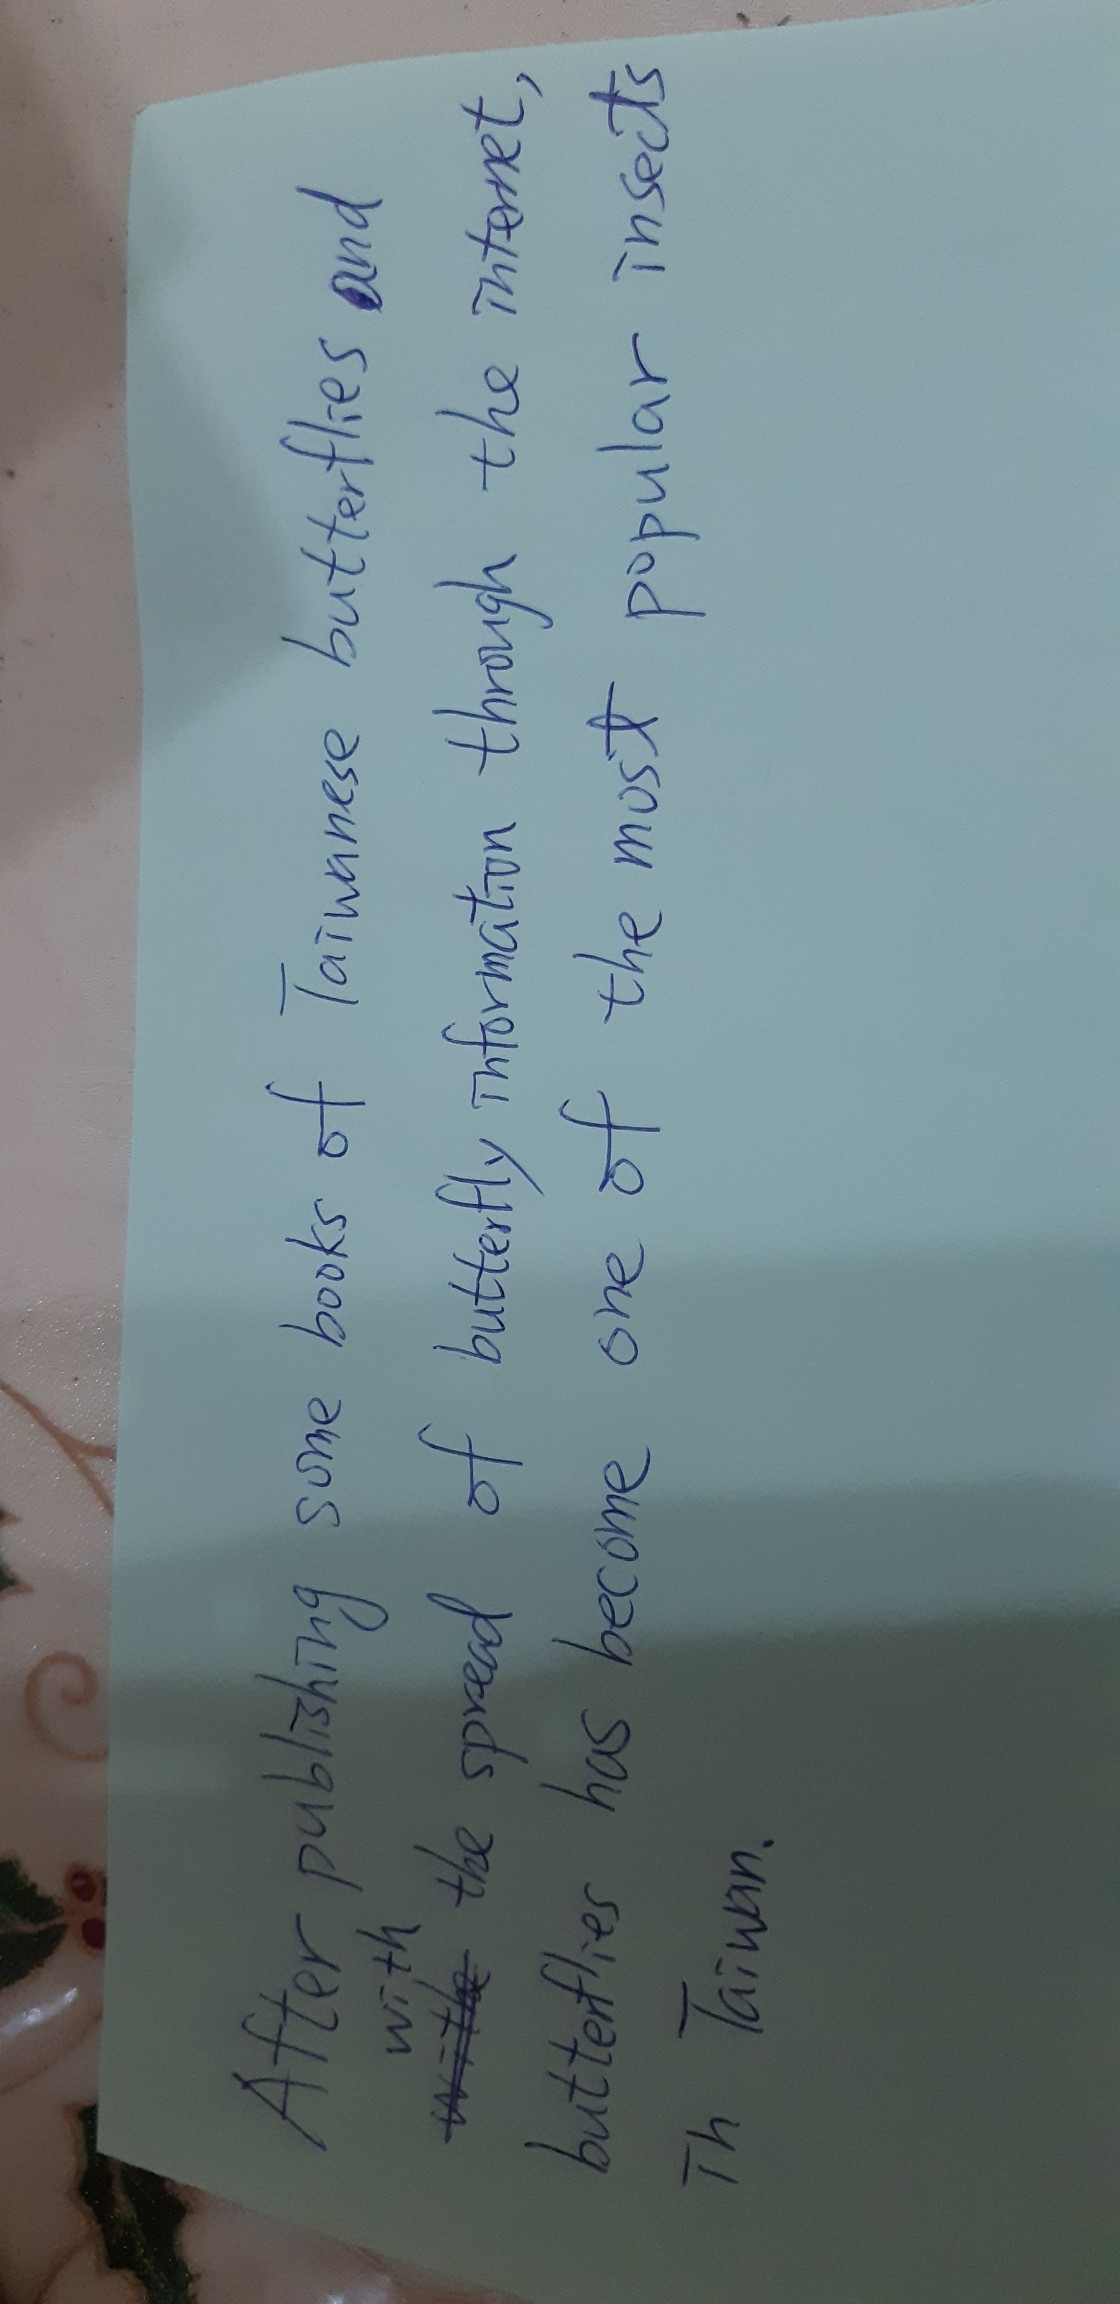 After publishing some books of Taiwanese butterflies and
with
the spread of butterfly information through the internet,
butterflies has become one of the most popular insects
in Taiwan.